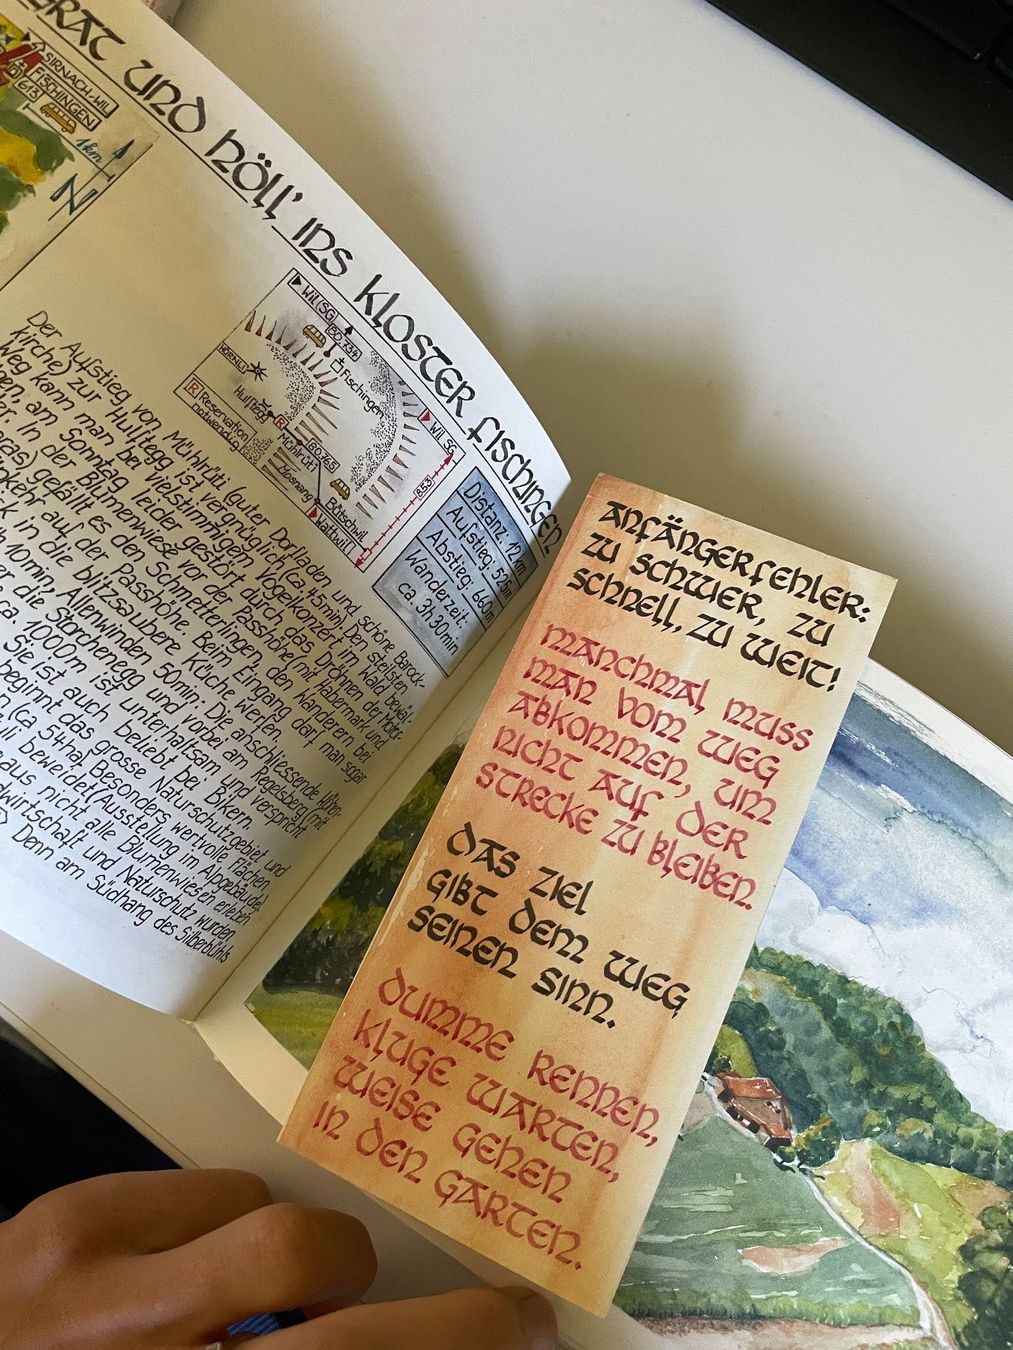 ERAT UND HÖLL' INS KLOSTER FISCHINGEN
SIRNACH-WIL
FISCHINGEN
613
1km
N
WIL (SG)
80.734
Fischingen
HÖRNLI
Hulftegg
R
Mühlrüti
80.765
R Reservation
notwendig
Mosnang
Bütschwil
Wattwil
WIL SG
853
Distanz: 12km
Aufstieg: 525m
Abstieg: 660m
Wanderzeit:
ca. 3h 30min
Der Aufstieg von Mühlrüti (guter Dorfladen und schöne Barock-
kirche) zur Hulftegg ist vergnüglich (ca. 45min). Den steilsten
Weg kann man bei vielstimmigem Vogelkonzert im Wald bewäl-
en, am Sonntag leider gestört durch das Dröhnen der Motor-
er. In der Blumenwiese vor der Passhöhe (mit Habermark und
as) gefällt es den Schmetterlingen, den Wanderern bei
enkert auf der Passhöhe. Beim Eingang darf man sogar
k in die blitzsaubere Küche werfen.
h 10min, Allenwinden 50min: Die anschliessende
er die Storchenegg und vorbei am Regelsberg (mit
ca. 1000m ist unterhaltsam und verspricht
Sie ist auch beliebt bei Bikern.
beginnt das grosse Naturschutzgebiet und
n (ca 5ha). Besonders wertvolle Flächen
uli beweidet (Ausstellung im Alpgebäude)
haus nicht alle Blumenwiesen erleben
dwirtschaft und Naturschutz wurden
Denn am Südhang des Silberbühls
ANFÄNGERFEHLER:
ZU SCHWER, ZU
SCHNELL, ZU WEIT!
MANCHMAL MUSS
MAN VOM WEG
ABKOMMEN, UM
NICHT AUF DER
STRECKE ZU BLEIBEN.
DAS ZIEL
GIBT DEM WEG
SEINEN SINN.
DUMME RENNEN,
KLUGE WARTEN,
WEISE GEHEN
IN DEN GARTEN.